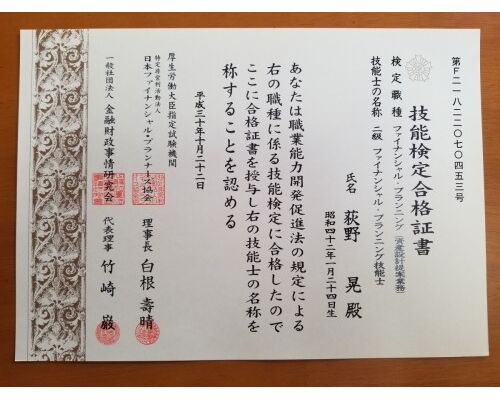 第F二一八一二二〇七〇四五三号
技能検定合格証書
検定職種 ファイナンシャル・プランニング(資産設計提案業務)
技能士の名称 二級 ファイナンシャル・プランニング技能士
氏名 荻野 晃 殿
昭和四十二年一月二十四日生
あなたは職業能力開発促進法の規定による
右の職種に係る技能検定に合格したので
ここに合格証書を授与し右の技能士の名称を
称することを認める
平成三十年十月二十二日
厚生労働大臣指定試験機関
特定非営利活動法人
日本ファイナンシャル・プランナーズ協会 理事長 白根 壽晴
一般社団法人 金融財政事情研究会 代表理事 竹崎 巌